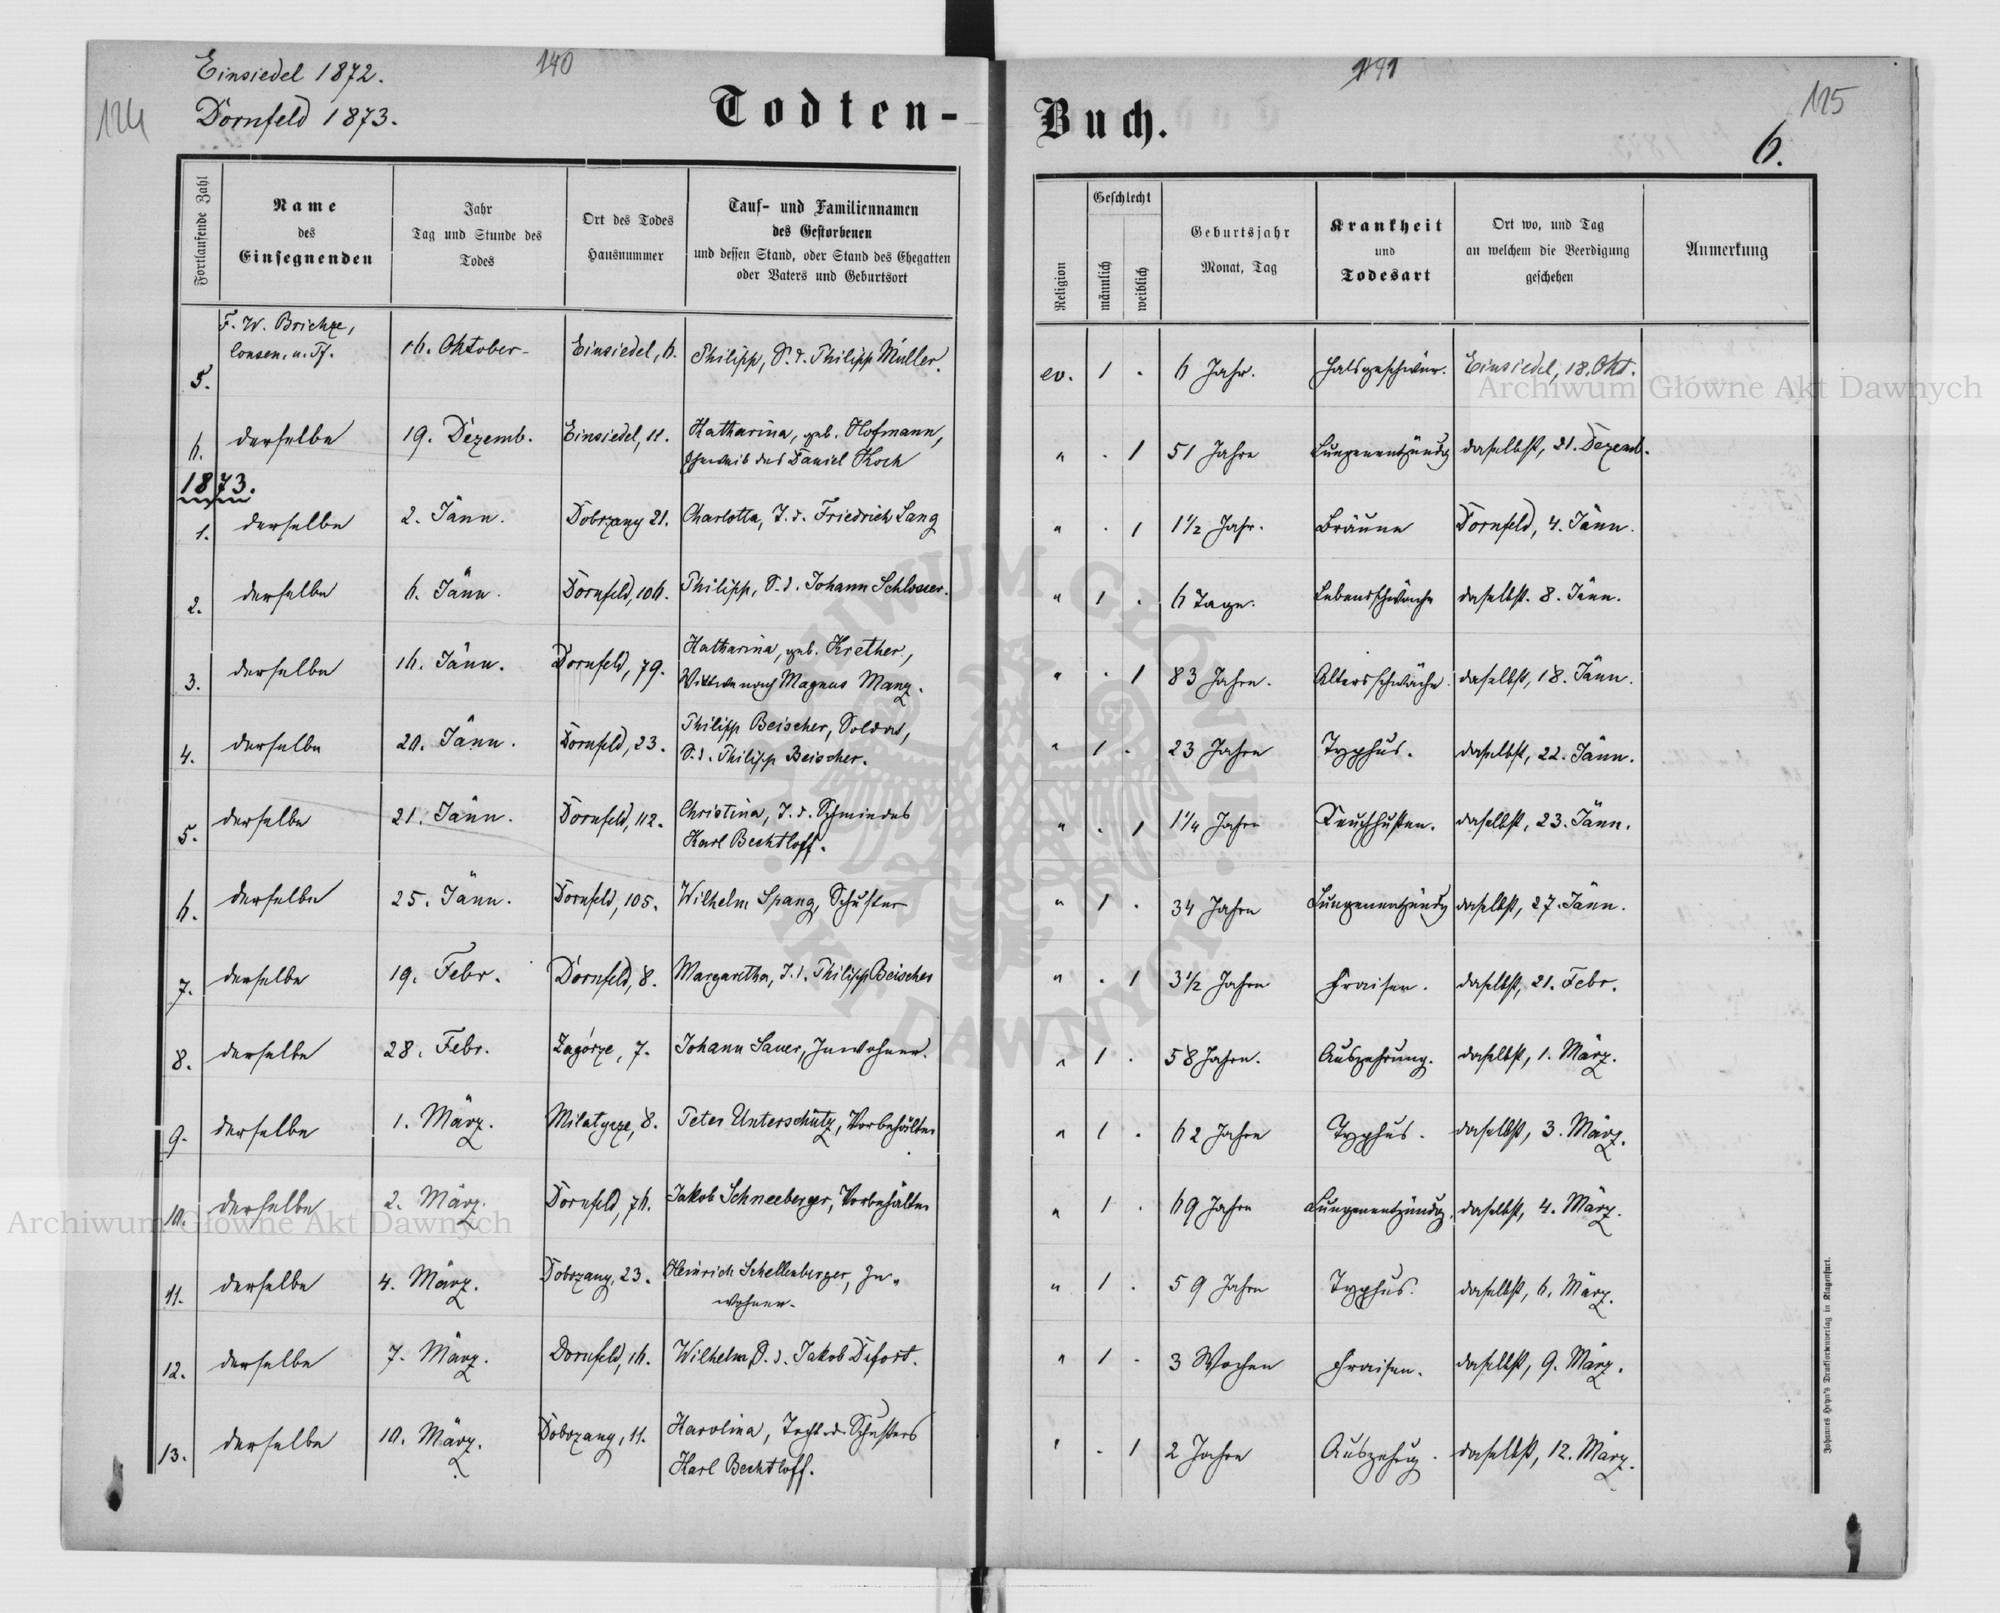 Einsiedel 1872.
Dornfeld 1873.
124
140
Todten-
Fortlaufende Zahl
Name
des
Einsegnenden
Jahr
Tag und Stunde des
Todes
Ort des Todes
Hausnummer
Tauf- und Familiennamen
des Gestorbenen
und dessen Stand, oder Stand des Ehegatten
oder Vaters und Geburtsort
141
125
Buch.
6.
Religion
Geschlecht
männlich
weiblich
Geburtsjahr
Monat, Tag
Krankheit
und
Todesart
Ort wo, und Tag
an welchem die Beerdigung
geschehen
Anmerkung
F. W.
5. 16. Oktober Einsiedel, 6. Philipp, S. d. Philipp Müller. ev. 1 . 6 Jahr. Halsgeschwür. Einsiedel, 18. Okt.
6. derselbe 19. Dezemb. Einsiedel, 11. Katharina, geb. Hofmann, " . 1 51 Jahre Lungenentzündg daselbst, 21. Dezemb.
Eheweib des Daniel Koch
1873.
1. derselbe 2. Jänn. Dobrzany 21. Charlotta, T. d. Friedrich Lang " . 1 1 1/2 Jahr. Bräune Dornfeld, 4. Jänn.
2. derselbe 6. Jänn. Dornfeld, 106. Philipp, S. d. Johann Schlosser. " 1 . 6 Tage. Lebensschwäche daselbst. 8. Jänn.
3. derselbe 16. Jänn. Dornfeld, 79. Katharina, geb. Krether, " . 1 83 Jahre. Altersschwäche. daselbst, 18. Jänn.
Wittwe nach Magnus Manz.
4. derselbe 20. Jänn. Dornfeld, 23. Philipp Beischer, Soldat, " 1 . 23 Jahre Typhus. daselbst, 22. Jänn.
S. d. Philipp Beischer.
5. derselbe 21. Jänn. Dornfeld, 112. Christina, T. d. Schmiedes " . 1 1 1/4 Jahre Keuchhusten. daselbst, 23. Jänn.
Karl Bechtloff.
6. derselbe 25. Jänn. Dornfeld, 105. Wilhelm Spang, Schuster " 1 . 34 Jahre Lungenentzündg daselbst, 27. Jänn.
7. derselbe 19. Febr. Dornfeld, 8. Margaretha, T. d. Philipp Beischer " . 1 3 1/2 Jahre Fraisen. daselbst, 21. Febr.
8. derselbe 28. Febr. Zagórze, 7. Johann Sauer, Inwohner. " 1 . 58 Jahre. Auszehrung. daselbst, 1. März.
9. derselbe 1. März. Milatycze, 8. Peter Unterschütz, Vorbehälter " 1 . 62 Jahre Typhus. daselbst, 3. März.
10. derselbe 2. März. Dornfeld, 76. Jakob Schneeberger, Vorbehälter " 1 . 69 Jahre Lungenentzündg. daselbst, 4. März.
11. derselbe 4. März. Dobrzany, 23. Heinrich Schellenberger, In- " 1 . 59 Jahre Typhus. daselbst, 6. März.
wohner.
12. derselbe 7. März. Dornfeld, 16. Wilhelm, S. d. Jakob Difort. " 1 . 3 Wochen Fraisen. daselbst, 9. März.
13. derselbe 10. März. Dobrzany, 11. Karolina, Tocht. d. Schusters " . 1 2 Jahre Auszehrg. daselbst, 12. März.
Karl Bechtloff.
Johannes Heyn's Drucksortenverlag in Klagenfurt.
Archiwum Główne Akt Dawnych
Archiwum Główne Akt Dawnych
ARCHIWUM GŁÓWNE AKT DAWNYCH